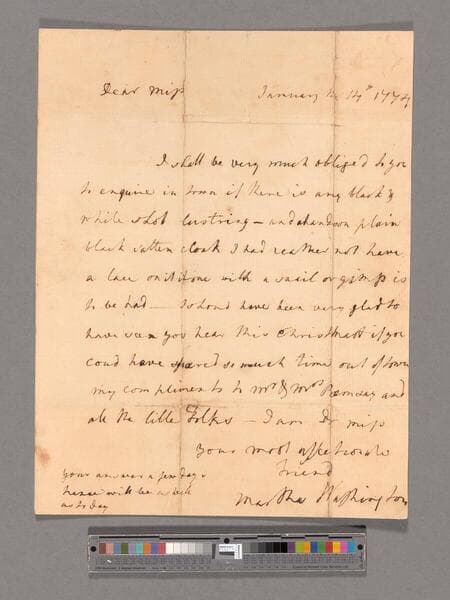 Dear Miss
January the 14th 1774
I shall be very much obliged to you
to enquire in town if there is any black &
white shot lustring – and a handsom plain
black satten cloak I had reather not have
a lace on it if one with a snail or gimp is
to be had — I shoud have been very glad to
have seen you hear this Christmass if you
coud have spared so much time out of town
my compliments to Mr & Mrs Ramsay and
all the litle Folks – I am Dr miss
your most affectionate
Friend
Martha Washington
your answer a few days
hence will be as well
as to day